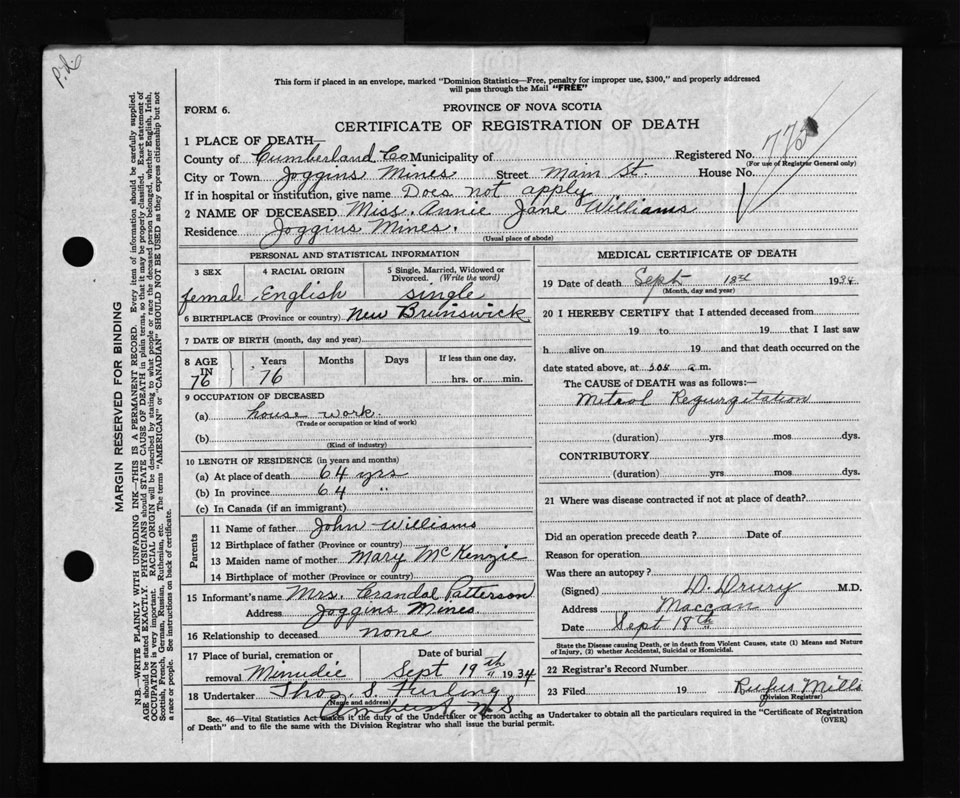 P.d.
This form if placed in an envelope, marked "Dominion Statistics—Free, penalty for improper use, $300," and properly addressed
will pass through the Mail "FREE"
FORM 6.
PROVINCE OF NOVA SCOTIA
CERTIFICATE OF REGISTRATION OF DEATH
1 PLACE OF DEATH—
County of Cumberland Co Municipality of Registered No. 773
(For use of Registrar General only)
City or Town Joggins Mines Street Main St. House No.
If in hospital or institution, give name Does not apply
2 NAME OF DECEASED Miss. Annie Jane Williams
Residence Joggins Mines.
(Usual place of abode)
PERSONAL AND STATISTICAL INFORMATION
3 SEX 4 RACIAL ORIGIN 5 Single, Married, Widowed or
Divorced. (Write the word)
female English single
6 BIRTHPLACE (Province or country) New Brunswick
7 DATE OF BIRTH (month, day and year)
8 AGE IN 76 Years 76 Months Days If less than one day,
hrs. or min.
9 OCCUPATION OF DECEASED
(a) house work.
(Trade or occupation or kind of work)
(b)
(Kind of industry)
10 LENGTH OF RESIDENCE (in years and months)
(a) At place of death 64 yrs
(b) In province 64 "
(c) In Canada (if an immigrant)
Parents
11 Name of father John Williams
12 Birthplace of father (Province or country)
13 Maiden name of mother Mary McKenzie
14 Birthplace of mother (Province or country)
15 Informant's name Mrs. Crandal Patterson
Address Joggins Mines.
16 Relationship to deceased none
17 Place of burial, cremation or Date of burial
removal Minudie Sept 19th 1934
18 Undertaker Thos. S. Furling
(Name and address)
Amherst N.S.
MEDICAL CERTIFICATE OF DEATH
19 Date of death Sept 18th 1934
(Month, day and year)
20 I HEREBY CERTIFY that I attended deceased from
19 to 19 that I last saw
h alive on 19 and that death occurred on the
date stated above, at a m.
The CAUSE of DEATH was as follows:—
Mitral Regurgitation
(duration) yrs mos dys.
CONTRIBUTORY
(duration) yrs. mos. dys.
21 Where was disease contracted if not at place of death?
Did an operation precede death? Date of
Reason for operation
Was there an autopsy?
(Signed) D. Drury M.D.
Address Maccan
Date Sept 18th
State the Disease causing Death, or in death from Violent Causes, state (1) Means and Nature
of Injury, (2) whether Accidental, Suicidal or Homicidal.
22 Registrar's Record Number
23 Filed 19 Rufus Mills
(Division Registrar)
Sec. 46—Vital Statistics Act makes it the duty of the Undertaker or person acting as Undertaker to obtain all the particulars required in the "Certificate of Registration
of Death" and to file the same with the Division Registrar who shall issue the burial permit. (OVER)
MARGIN RESERVED FOR BINDING
N.B.—WRITE PLAINLY WITH UNFADING INK—THIS IS A PERMANENT RECORD. Every item of information should be carefully supplied.
AGE should be stated EXACTLY. PHYSICIANS should STATE CAUSE OF DEATH in plain terms, so that it may be properly classified. Exact statement of
OCCUPATION is very important. RACIAL ORIGIN will be described by stating to what people or race the deceased person belonged, whether English, Irish,
Scottish, French, German, Russian, Ruthenian, etc. The terms "AMERICAN" or "CANADIAN" SHOULD NOT BE USED as they express citizenship but not
a race or people. See instructions on back of certificate.